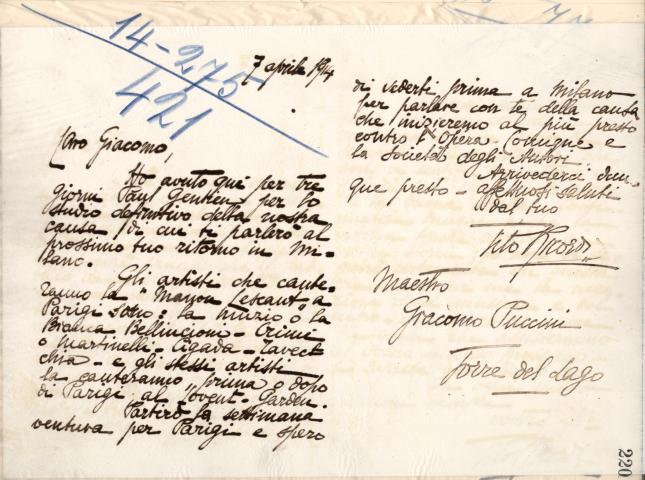 14-275
421
7 aprile 1914
Caro Giacomo,
Ho avuto qui per tre
giorni Paul Gentien per lo
studio definitivo della nostra
causa di cui ti parlerò al
prossimo tuo ritorno in Mi-
lano.
Gli artisti che cante-
ranno la "Manon Lescaut" a
Parigi sono: la Muzio o la
Bianca Bellincioni - Crimi
o Martinelli - Cigada -
- e gli stessi artisti
la canteranno prima o dopo
di Parigi al Covent-Garden.
Partirò la settimana
ventura per Parigi e spero
di vederti prima a Milano
per parlare con te della causa
che inizieremo al più presto
contro l'Opera Comique e
la Società degli Autori.
Arrivederci dun-
que presto - affettuosi saluti
dal tuo
Tito Ricordi
Maestro
Giacomo Puccini
Torre del Lago
220